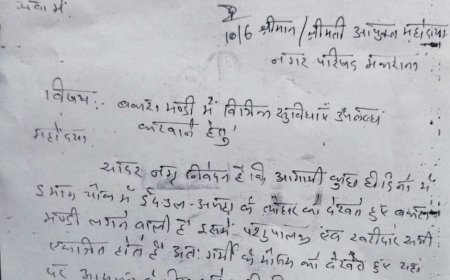 सेवा में,
10/6 श्रीमान/श्रीमती आयुक्त महोदया
नगर परिषद मकराना
विषय:- बकरा मण्डी में विभिन्न सुविधाएँ उपलब्ध
करवाने हेतु।
महोदया,
सादर नम्र निवेदन है कि आगामी कुछ ही दिनों में
इमाम चौक में ईद-उल-अजहा के त्यौहार को देखते हुए बकरा
मण्डी लगने वाली है इसमें पशुपालक एवं खरीददार सभी
एकत्रित होते है अतः गर्मी के मौसम को देखते हुए यहां
पर